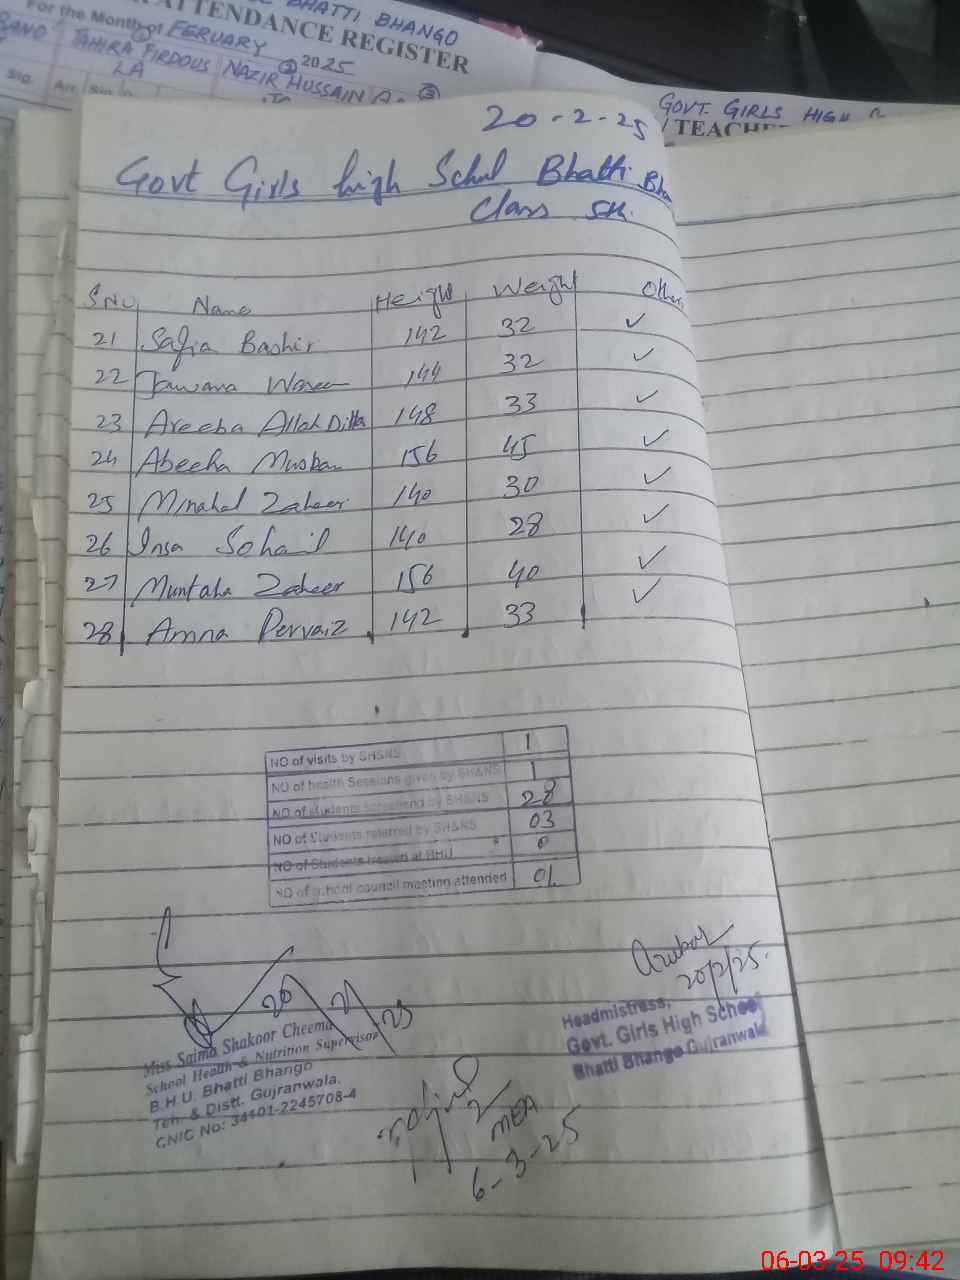 BHATTI BHANGO
ATTENDANCE REGISTER
For the Month of FERUARY 2025
TAHIRA FIRDOUS NAZIR HUSSAIN
LA
Sig. Arr. Sig.
GOVT. GIRLS HIGH
TEACHE
20-2-25
Govt Girls high Schul Bhatti Bha
Class 5th.
S.No Name Height Weight Others
21 Safia Bashir 142 32 ✓
22 Jawana Waseem 144 32 ✓
23 Areeba Allah Ditta 148 33 ✓
24 Abeeha Muskan 156 45 ✓
25 Minahal Zaheer 140 30 ✓
26 Insa Sohail 140 28 ✓
27 Muntaha Zaheer 156 40 ✓
28 Amna Pervaiz 142 33 ✓
NO of visits by SH&NS 1
NO of health Sessions given by SH&NS 1
NO of students screened by SH&NS 28
NO of Students referred by SH&NS 03
NO of Students treated at BHU 0
NO of school council meeting attended 01
20/2/25.
Headmistress,
Govt. Girls High School
Bhatti Bhango Gujranwala
20 2 25
Miss Saima Shakoor Cheema
School Health & Nutrition Supervisor
B.H.U. Bhatti Bhango
Teh. & Distt. Gujranwala.
CNIC No: 34101-2245708-4
MEA
6-3-25
06-03-25 09:42